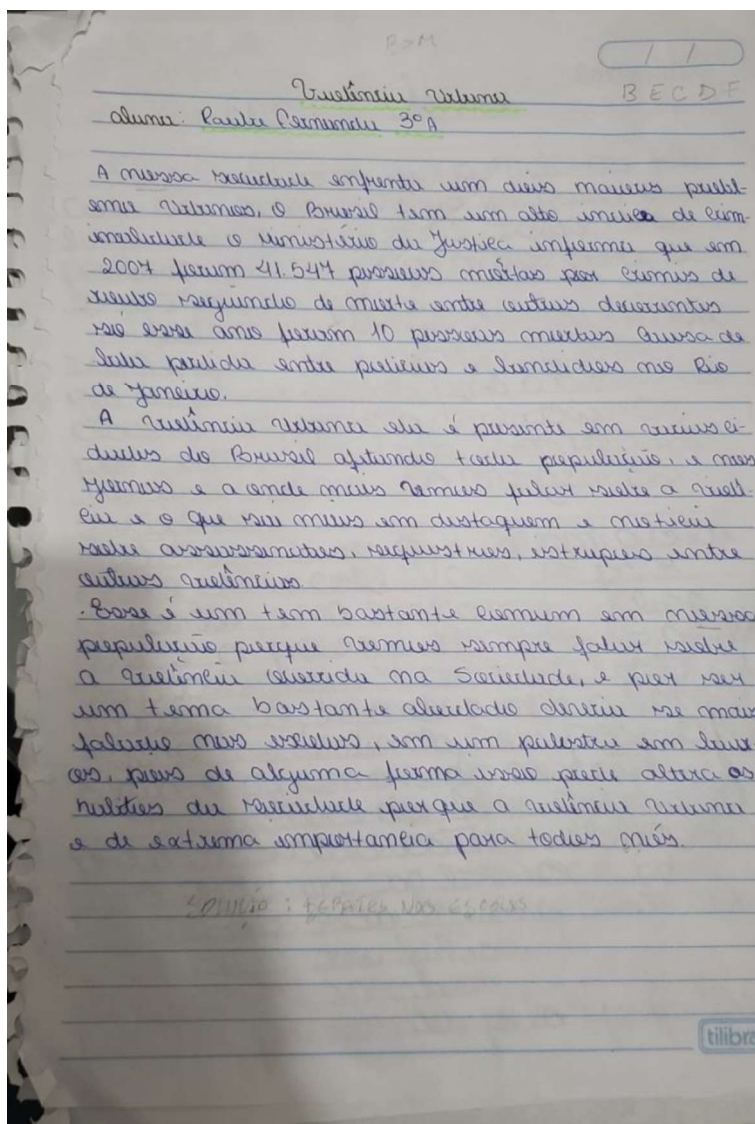 B>M
/ /
B E C D F
Violência Urbana
aluna: Paula Fernanda 3º A
A nossa sociedade enfrenta um dios maiores probl-
ema Urbanos, o Brasil tem um alto indice de crim-
inalidade o ministério da Justiça informa que em
2007 foram 41.547 pessoas mortas por crimes de
roubo seguindo de morte entre outros decorrentes
só esse ano foram 10 pessoas mortas causa de
bala perdida entre policias e bandidos no Rio
de Janeiro.
A violência Urbana ela é presente em varias ci-
dades do Brasil afetando toda população, e nos
jornais e a onde mais vemos falar sobre a violê-
cia e o que sai mais em distaquem e noticia
sobre assassinatos, sequestros, istrupos entre
outras violências.
. Esse é um tem bastante comum em nossa
população porque vemos sempre falar sobre
a violência ocorrida na Sociedade, e por ser
um tema bastante abordado deveria se mais
falado nas escolas, em um palestra em
os, pois de alguma forma isso pode altera os
da sociedade porque a violência urbana
e de extrema importancia para todos nós.
SOLUÇÃO : DEBATES NAS ESCOLAS
tilibra